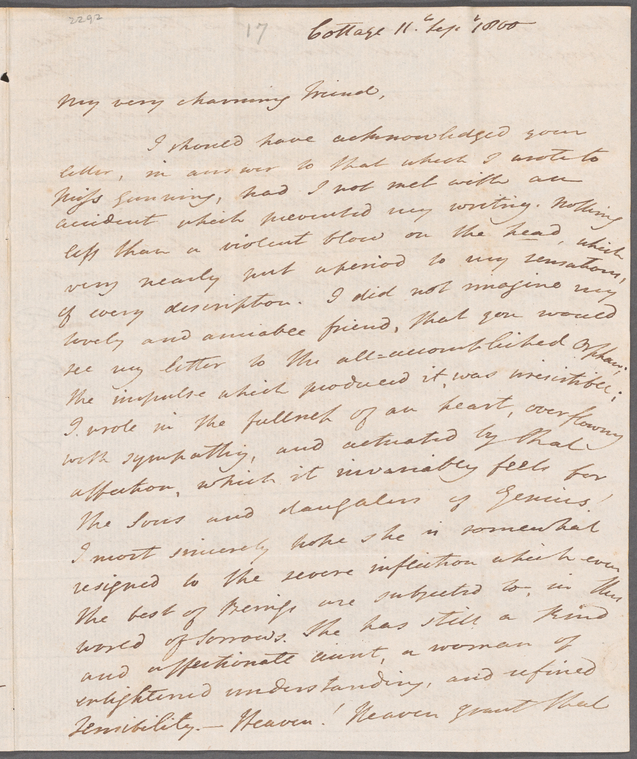 2297
17
Cottage 11.th Sep.r 1800
My very charming Friend,
I should have acknowledged your
letter, in answer to that which I wrote to
Miss Gunning, had I not met with an
accident which prevented my writing. Nothing
less than a violent blow on the head, which
very nearly put a period to my sensations,
of every description. I did not imagine my
lovely and amiable friend, that you would
see my letter to the all=accomplished Orphan:
the impulse which produced it, was irresistible.
I wrote in the fullness of an heart, overflowing
with sympathy, and actuated by that
affection, which it invariably feels for
the Sons and daughters of Genius!
I most sincerely hope she is somewhat
resigned to the severe infliction which even
the best of Beings are subjected to, in this
world of sorrows. She has still a kind
and affectionate aunt, a woman of
enlightened understanding, and refined
Sensibility.— Heaven! Heaven grant that